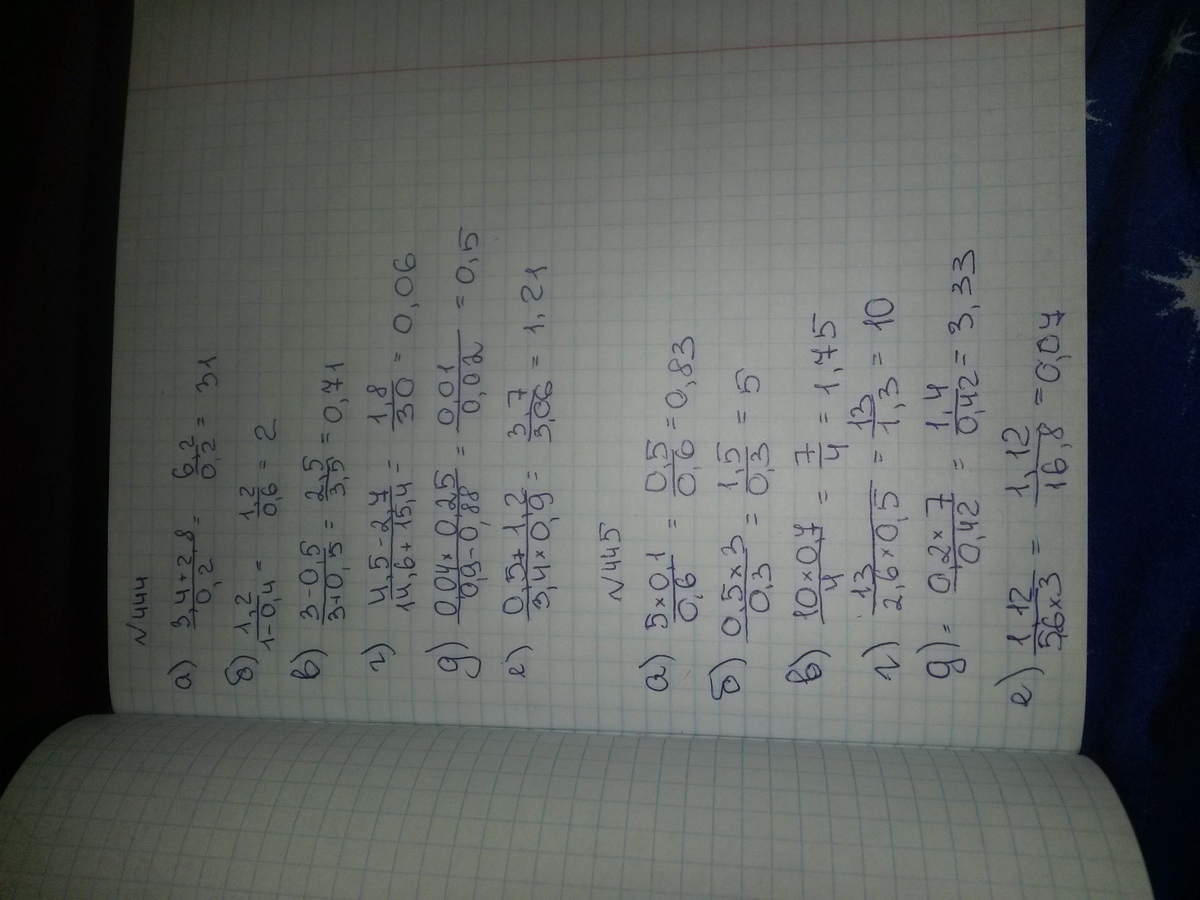 №444
а) 3,4+2,8/0,2 = 6,2/0,2 = 31
б) 1,2/1-0,4 = 1,2/0,6 = 2
в) 3-0,5/3+0,5 = 2,5/3,5 = 0,71
г) 4,5-2,7/14,6+15,4 = 1,8/30 = 0,06
д) 0,04×0,25/0,9-0,88 = 0,01/0,02 = 0,5
е) 0,5+1,2/3,4×0,9 = 3,7/3,06 = 1,21
№445
а) 5×0,1/0,6 = 0,5/0,6 = 0,83
б) 0,5×3/0,3 = 1,5/0,3 = 5
в) 10×0,7/4 = 7/4 = 1,75
г) 13/2,6×0,5 = 13/1,3 = 10
д) = 0,2×7/0,42 = 1,4/0,42 = 3,33
е) 1,12/5,6×3 = 1,12/16,8 = 0,07